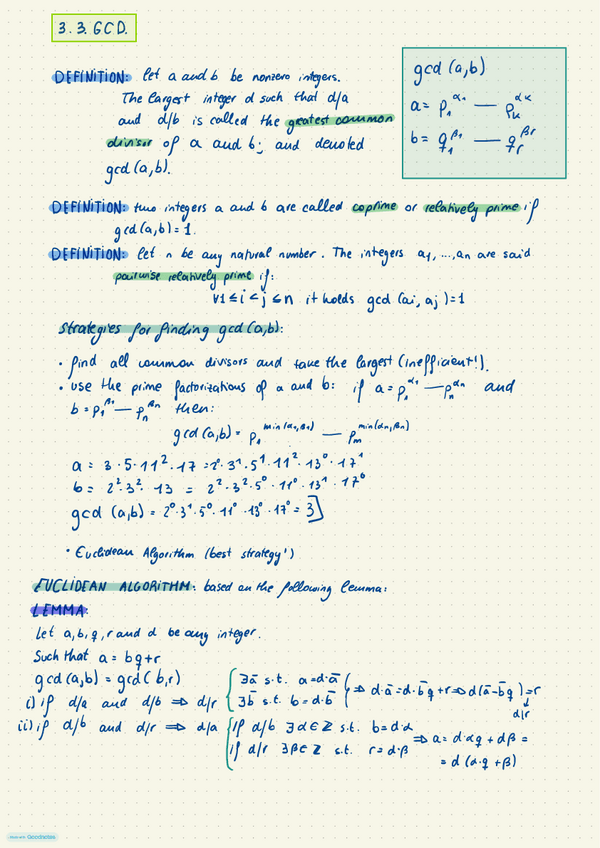 3.3. GCD.
DEFINITION: let a and b be nonzero integers.
The largest integer d such that d/a
and d/b is called the greatest common
divisor of a and b; and denoted
gcd(a,b).
gcd (a,b)
a = p₁^α₁ — pₖ^αₖ
b = q₁^β₁ — qᵣ^βᵣ
DEFINITION: two integers a and b are called coprime or relatively prime if
gcd(a,b)=1.
DEFINITION: let n be any natural number. The integers a₁, ..., aₙ are said
pairwise relatively prime if:
∀1≤i<j≤n it holds gcd (ai, aj)=1
Strategies for finding gcd(a,b):
• find all common divisors and take the largest (inefficient!).
• use the prime factorizations of a and b: if a=p₁^α₁ — pₙ^αₙ and
b=p₁^β₁ — pₙ^βₙ then:
gcd(a,b)= p₁^min(α₁,β₁) — pₘ^min(αₙ,βₙ)
a = 3·5·11²·17 =2⁰·3¹·5¹·11²·13⁰·17¹
b = 2²·3²·13 = 2²·3²·5⁰·11⁰·13¹·17⁰
gcd (a,b) = 2⁰·3¹·5⁰·11⁰·13⁰·17⁰ = 3
• Euclidean Algorithm (best strategy!)
EUCLIDEAN ALGORITHM: based on the following lemma:
LEMMA:
Let a,b,q,r and d be any integer.
Such that a = bq+r
gcd(a,b) = gcd(b,r)
i) if d/a and d/b ⇒ d/r { ∃ā s.t. a=d·ā
∃b̄ s.t. b=d·b̄ } ⇒ d·ā=d·b̄q+r ⇒ d(ā-b̄q)=r
↓
d/r
ii) if d/b and d/r ⇒ d/a { if d/b ∃α∈ℤ s.t. b=d·α
if d/r ∃β∈ℤ s.t. r=d·β ⇒ a=d·αq+dβ=
= d(α·q+β)
Made with Goodnotes